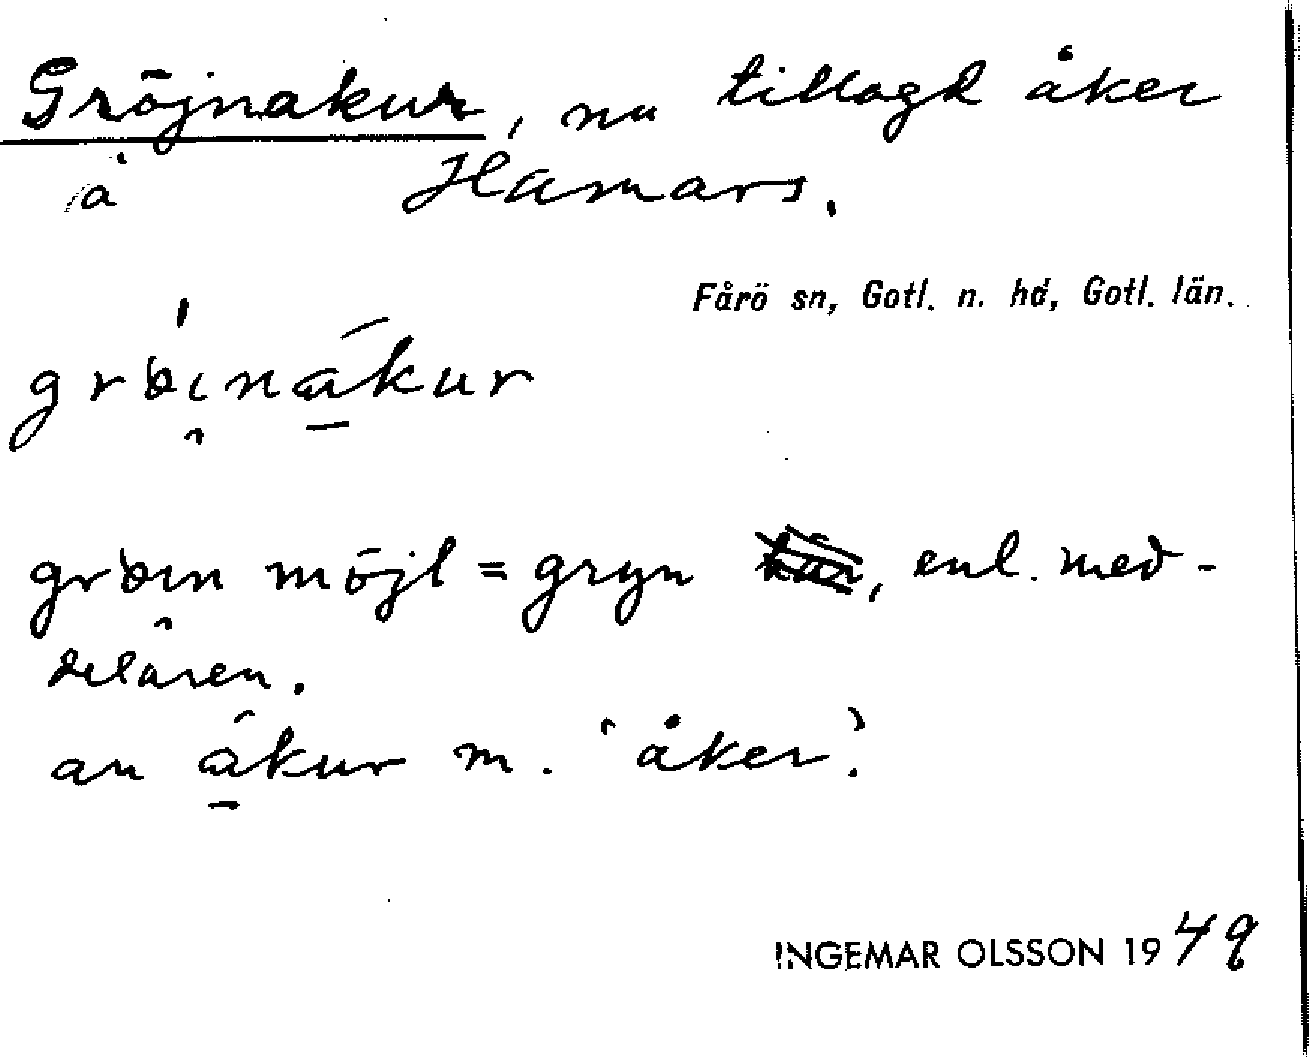 Gröjnakur, nu tillagd åker
å Hamars.
Fårö sn, Gotl. n. hd, Gotl. län.
gröinákur
gröin möjl = gryn, enl. med-
delaren.
an ákur m. 'åker'.
INGEMAR OLSSON 1949